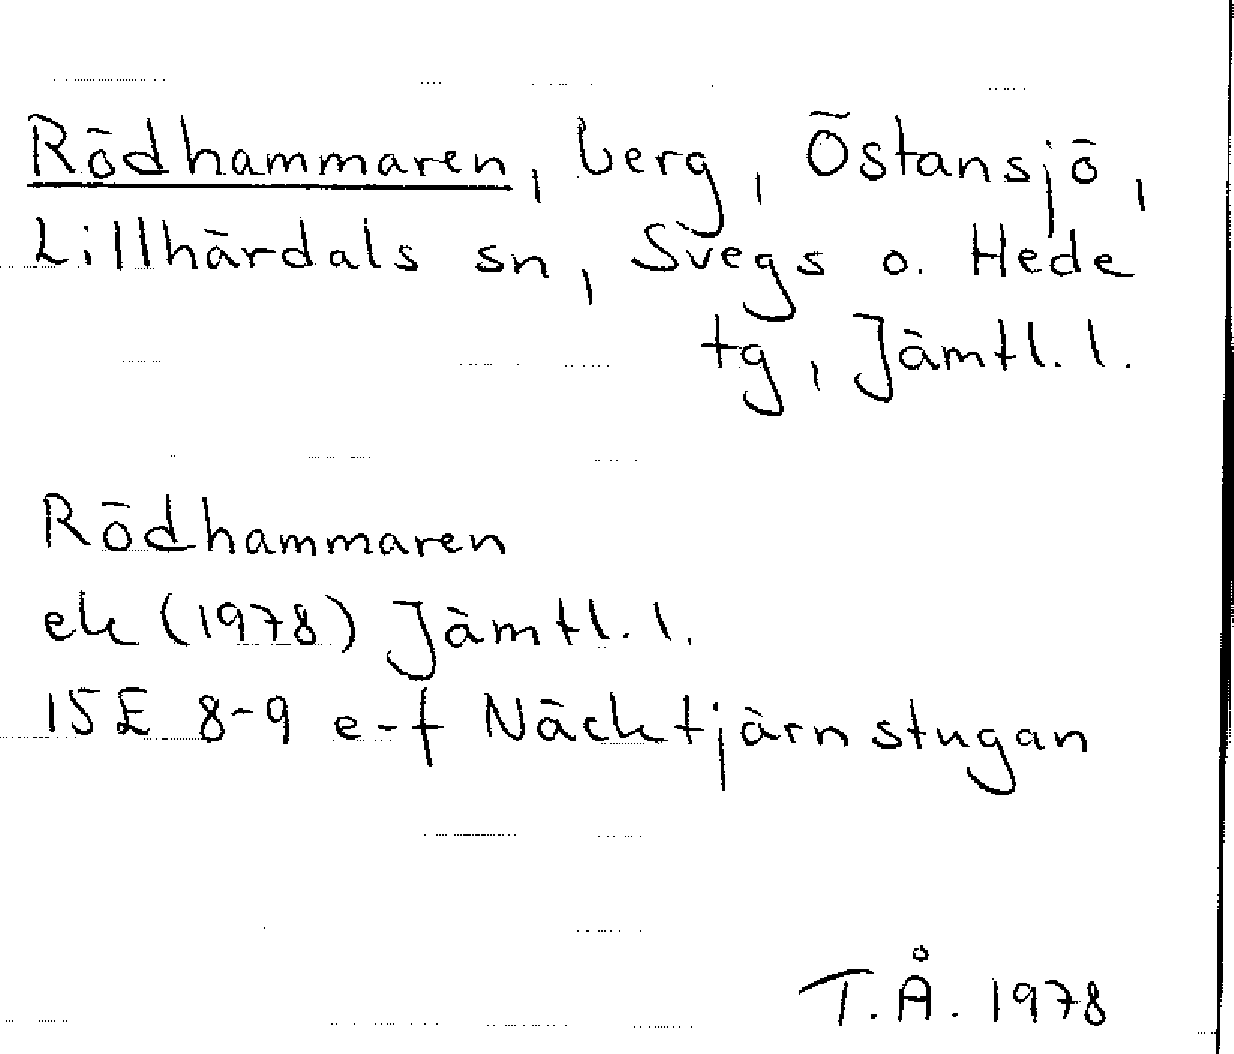 Rödhammaren, berg, Östansjö,
Lillhärdals sn, Svegs o. Hede
tg, Jämtl. l.
Rödhammaren
ek (1978) Jämtl. l.
15E 8-9 e-f Näcktjärnstugan
T.Å. 1978